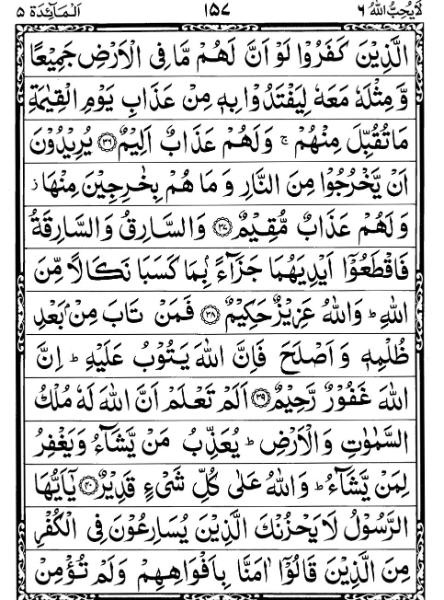 لَا يُحِبُّ اللّٰهُ ٦ ١٥٧ اَلْمَآئِدَة ٥
الَّذِيْنَ كَفَرُوْا لَوْ اَنَّ لَهُمْ مَّا فِى الْاَرْضِ جَمِيْعًا
وَّ مِثْلَهٗ مَعَهٗ لِيَفْتَدُوْا بِهٖ مِنْ عَذَابِ يَوْمِ الْقِيٰمَةِ
مَا تُقُبِّلَ مِنْهُمْ ۚ وَلَهُمْ عَذَابٌ اَلِيْمٌ ﴿٣٦﴾ يُرِيْدُوْنَ
اَنْ يَّخْرُجُوْا مِنَ النَّارِ وَ مَا هُمْ بِخٰرِجِيْنَ مِنْهَا ز
وَلَهُمْ عَذَابٌ مُّقِيْمٌ ﴿٣٧﴾ وَالسَّارِقُ وَالسَّارِقَةُ
فَاقْطَعُوْٓا اَيْدِيَهُمَا جَزَآءًۢ بِمَا كَسَبَا نَكَالًا مِّنَ
اللّٰهِ ؕ وَاللّٰهُ عَزِيْزٌ حَكِيْمٌ ﴿٣٨﴾ فَمَنْ تَابَ مِنْۢ بَعْدِ
ظُلْمِهٖ وَاَصْلَحَ فَاِنَّ اللّٰهَ يَتُوْبُ عَلَيْهِ ؕ اِنَّ
اللّٰهَ غَفُوْرٌ رَّحِيْمٌ ﴿٣٩﴾ اَلَمْ تَعْلَمْ اَنَّ اللّٰهَ لَهٗ مُلْكُ
السَّمٰوٰتِ وَالْاَرْضِ ؕ يُعَذِّبُ مَنْ يَّشَآءُ وَيَغْفِرُ
لِمَنْ يَّشَآءُ ؕ وَاللّٰهُ عَلٰى كُلِّ شَىْءٍ قَدِيْرٌ ﴿٤٠﴾ يٰٓاَيُّهَا
الرَّسُوْلُ لَا يَحْزُنْكَ الَّذِيْنَ يُسَارِعُوْنَ فِى الْكُفْرِ
مِنَ الَّذِيْنَ قَالُوْٓا اٰمَنَّا بِاَفْوَاهِهِمْ وَلَمْ تُؤْمِنْ